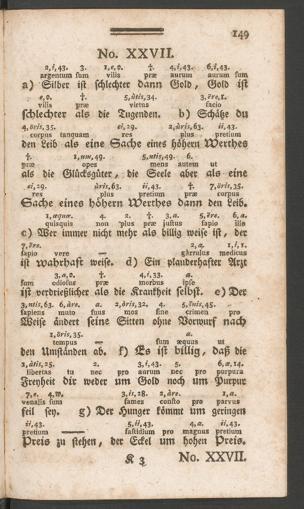 149
No. XXVII.
2,i,43. 3. 1,e,o. †. 4,i,43. 6,i,43.
argentum sum vilis præ aurum aurum sum
a) Silber ist schlechter dann Gold, Gold ist
e,o. †. 5,ûtis,34. 3,ĕre,1.
vilis præ virtus facio
schlechter als die Tugenden. b) Schätze du
4,ŏris,35. ei,29. 2,ŭris,63. ii,43.
corpus tanquam res plus pretium
den Leib als eine Sache eines höhern Werthes
†. 1,um,49. 5,ntis,49. 6.
præ opes mens autem ut
als die Glücksgüter, die Seele aber als eine
ei,29. ŭris,63. ii,43. †. 7,ŏris,35.
res plus pretium præ corpus
Sache eines höhern Werthes dann den Leib.
1,æquæ. 4. 2. †. 3,a. 5,ĕre. 6,a.
quisquis non plus præ justus sapio ille
c) Wer immer nicht mehr als billig weise ist, der
7,ĕre. 2,a. 1,i,1.
sapio vere — garrulus medicus
ist wahrhaft weise. d) Ein plauderhafter Arzt
3,a,o. †. 4,i,33. a.
sum odiosus præ morbus ipse
ist verdrießlicher als die Krankheit selbst. e) Der
3,ntis,63. 6,āre. a. 2,ōris,32. 4. 5,ĭnis,45.
sapiens muto suus mos sine crimen pro
Weise ändert seine Sitten ohne Vorwurf nach
1,ŏris,35. 2,a.
tempus — sum æquus ut
den Umständen ab. f) Es ist billig, daß die
1,ātis,25. 2. 3,i,43. 5. 6,æ,14.
libertas tu nec pro aurum nec pro purpura
Freyheit dir weder um Gold noch um Purpur
7,e. 4,w. 3,is,28. 2,āre. 1,a.
venalis sum fames consto pro parvus
feil sey. g) Der Hunger kömmt um geringen
ii,43. 5,ii,43. 4,a. ii,43.
pretium — fastidium pro magnus pretium
Preis zu stehen, der Eckel um hohen Preis.
K 3 No. XXVII.